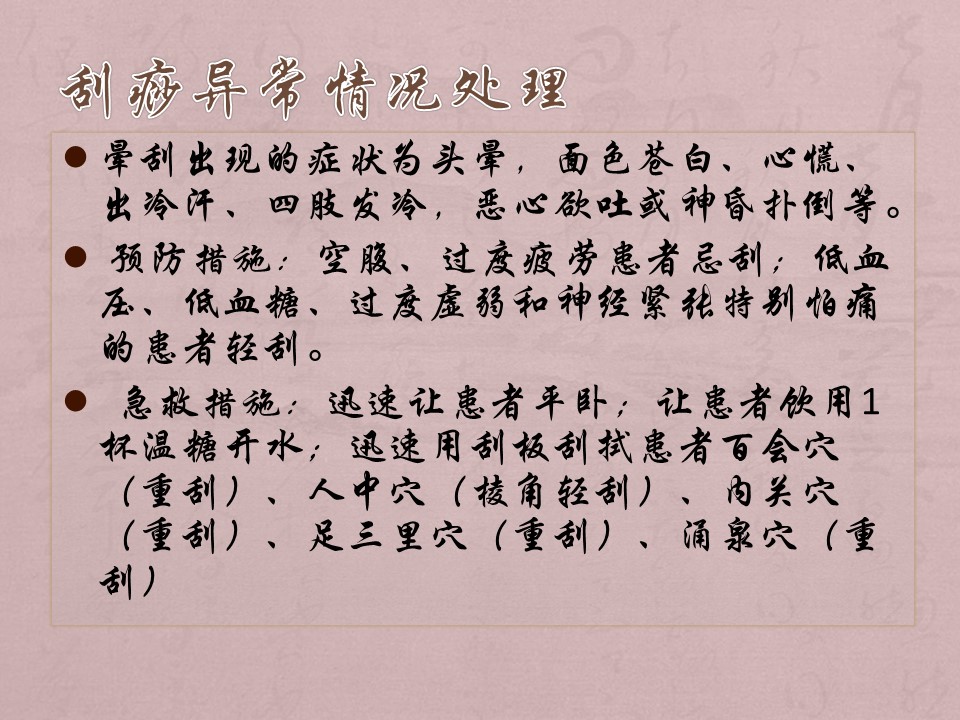 刮痧异常情况处理
晕刮出现的症状为头晕，面色苍白、心慌、
出冷汗、四肢发冷，恶心欲吐或神昏扑倒等。
预防措施：空腹、过度疲劳患者忌刮；低血
压、低血糖、过度虚弱和神经紧张特别怕痛
的患者轻刮。
急救措施：迅速让患者平卧；让患者饮用1
杯温糖开水；迅速用刮板刮拭患者百会穴
（重刮）、人中穴（棱角轻刮）、内关穴
（重刮）、足三里穴（重刮）、涌泉穴（重
刮）